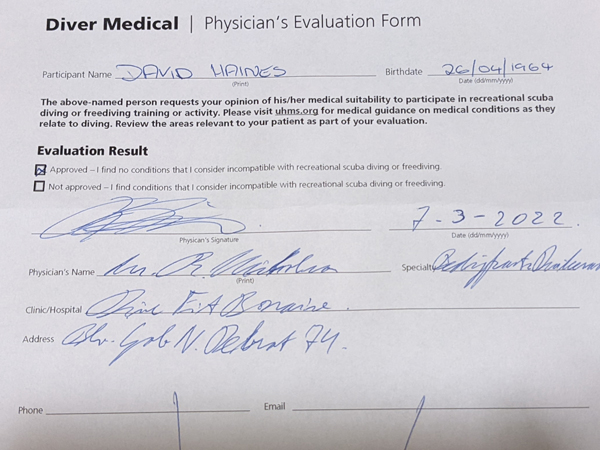 Diver Medical | Physician's Evaluation Form
Participant Name DAVID HAINES Birthdate 26/04/1964
(Print) Date (dd/mm/yyyy)
The above-named person requests your opinion of his/her medical suitability to participate in recreational scuba
diving or freediving training or activity. Please visit uhms.org for medical guidance on medical conditions as they
relate to diving. Review the areas relevant to your patient as part of your evaluation.
Evaluation Result
Approved – I find no conditions that I consider incompatible with recreational scuba diving or freediving.
Not approved – I find conditions that I consider incompatible with recreational scuba diving or freediving.
7-3-2022.
Physician's Signature Date (dd/mm/yyyy)
Physician's Name R. Specialty
(Print)
Clinic/Hospital Dive Fit Bonaire.
Address Blv. Gob N. Debrot 74.
Phone Email